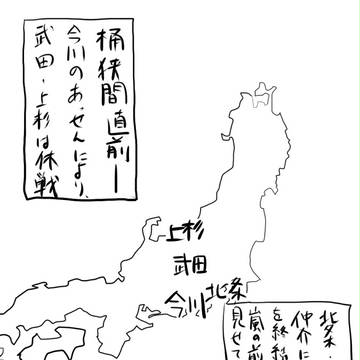 桶狭間直前―
今川のあっせんにより、
武田・上杉は休戦
上杉
武田
今川
北条
北条・
仲介に
嵐の前
見せ